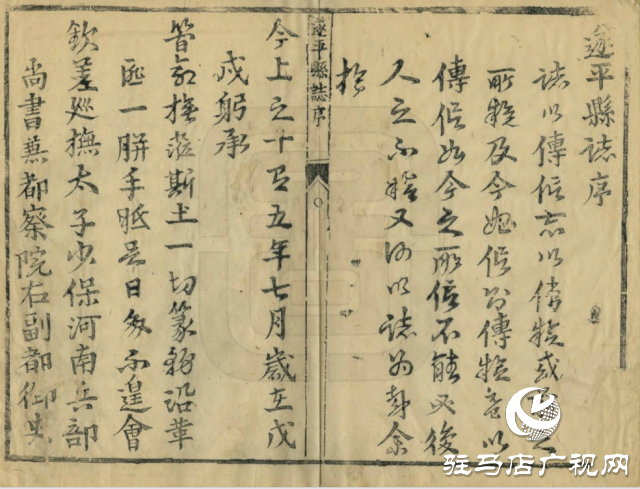 遂平縣誌序
誌以傳信亦以備驗或之
所驗及今始信則傳驗意以
傳信如今之所信不能必後
人之不又何以誌為余
於
遂平縣誌序
今上之十有五年七月歲在戊
戍躬承
撫蒞斯土一切篆務沿革
匪一胼手胝足日夕不遑會
欽差巡撫太子少保河南兵部
尚書兼都察院右副都御史
驻马店广视网